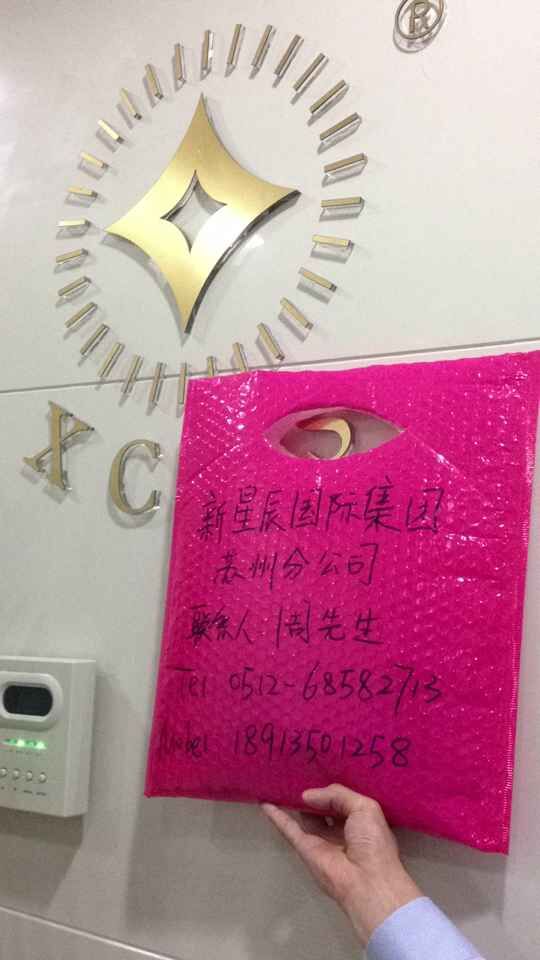 R
XC
新星辰国际集团
苏州分公司
联系人:周先生
Tel 0512-68582713
18913501258